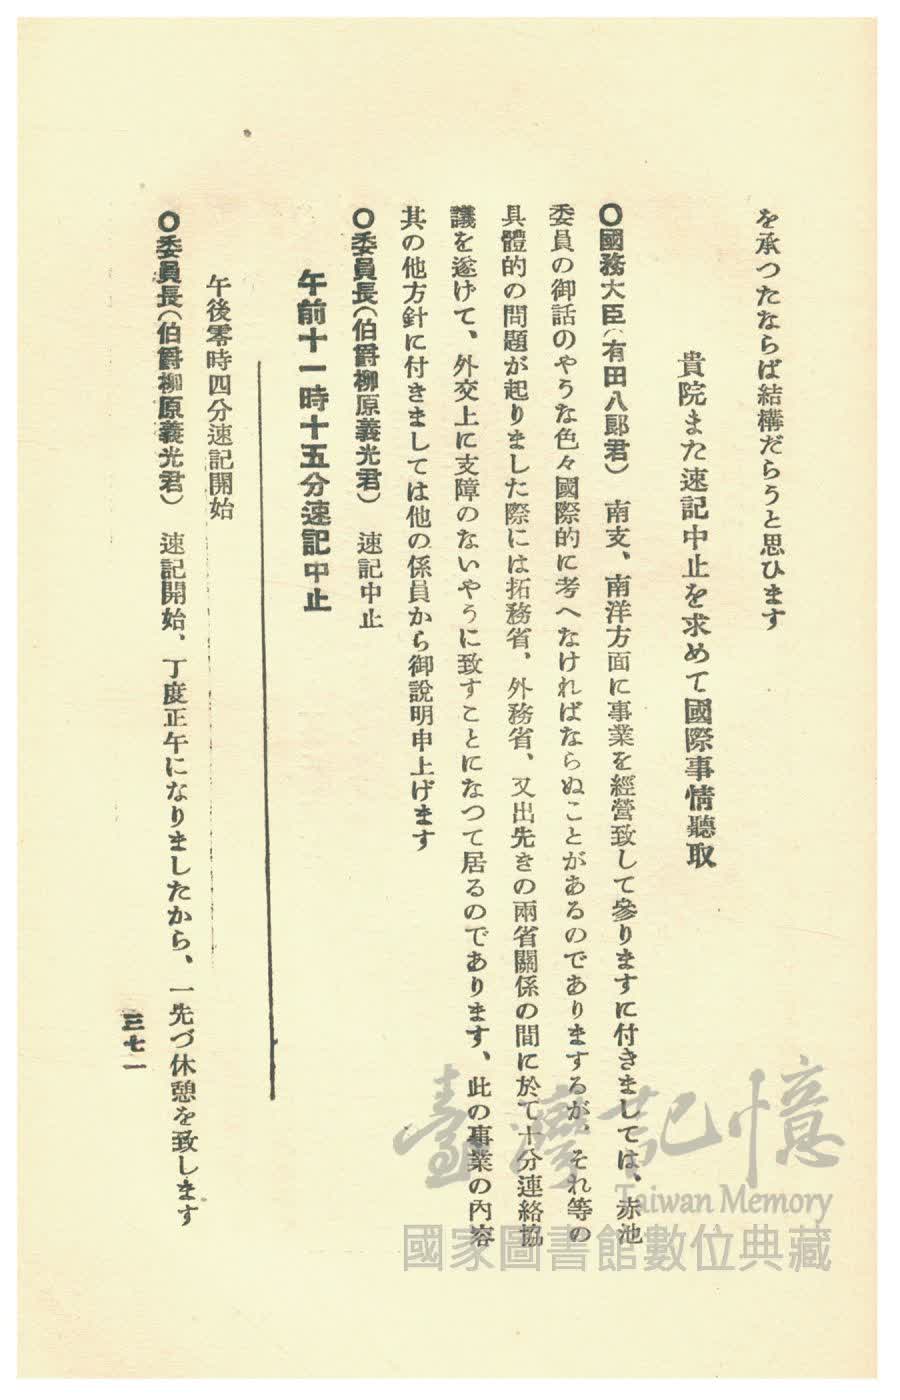 を承つたならば結構だらうと思ひます
貴院また速記中止を求めて國際事情聽取
○國務大臣(有田八郎君)　南支、南洋方面に事業を經營致して參りますに付きましては、赤池
委員の御話のやうな色々國際的に考へなければならぬことがあるのでありまするが、それ等の
具體的の問題が起りました際には拓務省、外務省、又出先きの兩省關係の間に於て十分連絡協
議を遂げて、外交上に支障のないやうに致すことになつて居るのであります、此の事業の內容
其の他方針に付きましては他の係員から御說明申上げます
○委員長(伯爵柳原義光君)　速記中止
午前十一時十五分速記中止
午後零時四分速記開始
○委員長(伯爵柳原義光君)　速記開始、丁度正午になりましたから、一先づ休憩を致します
三七一
臺灣記憶
Taiwan Memory
國家圖書館數位典藏